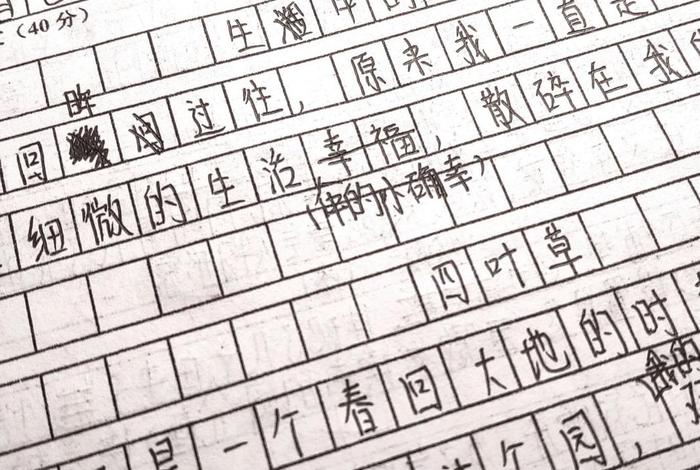 (40分)
生活中的
眸
回过往，原来我一直是
细微的生活幸福，散碎在我
的小确幸
四叶草
是一个春回大地的时
个园，